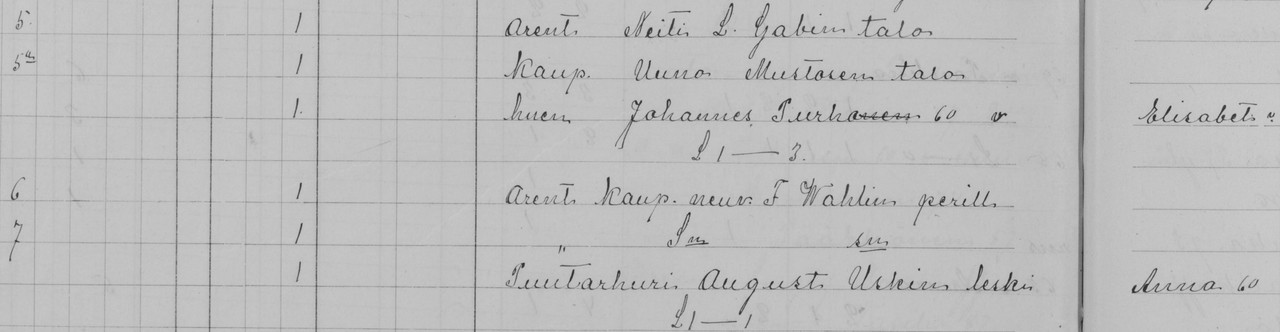 5 1 Arent. Neiti L. Gabin talo
5a 1 Kaup. Uuno Mustosen talo
1. huen Johannes Purhonen 60 v Elisabet
L 1 — 3.
6 1 Arent. Kaup. neuv. F Wahlin perill.
7 1 „ Sm sm
1 Puutarhuri August Uskin leski Anna 60
L 1 — 1